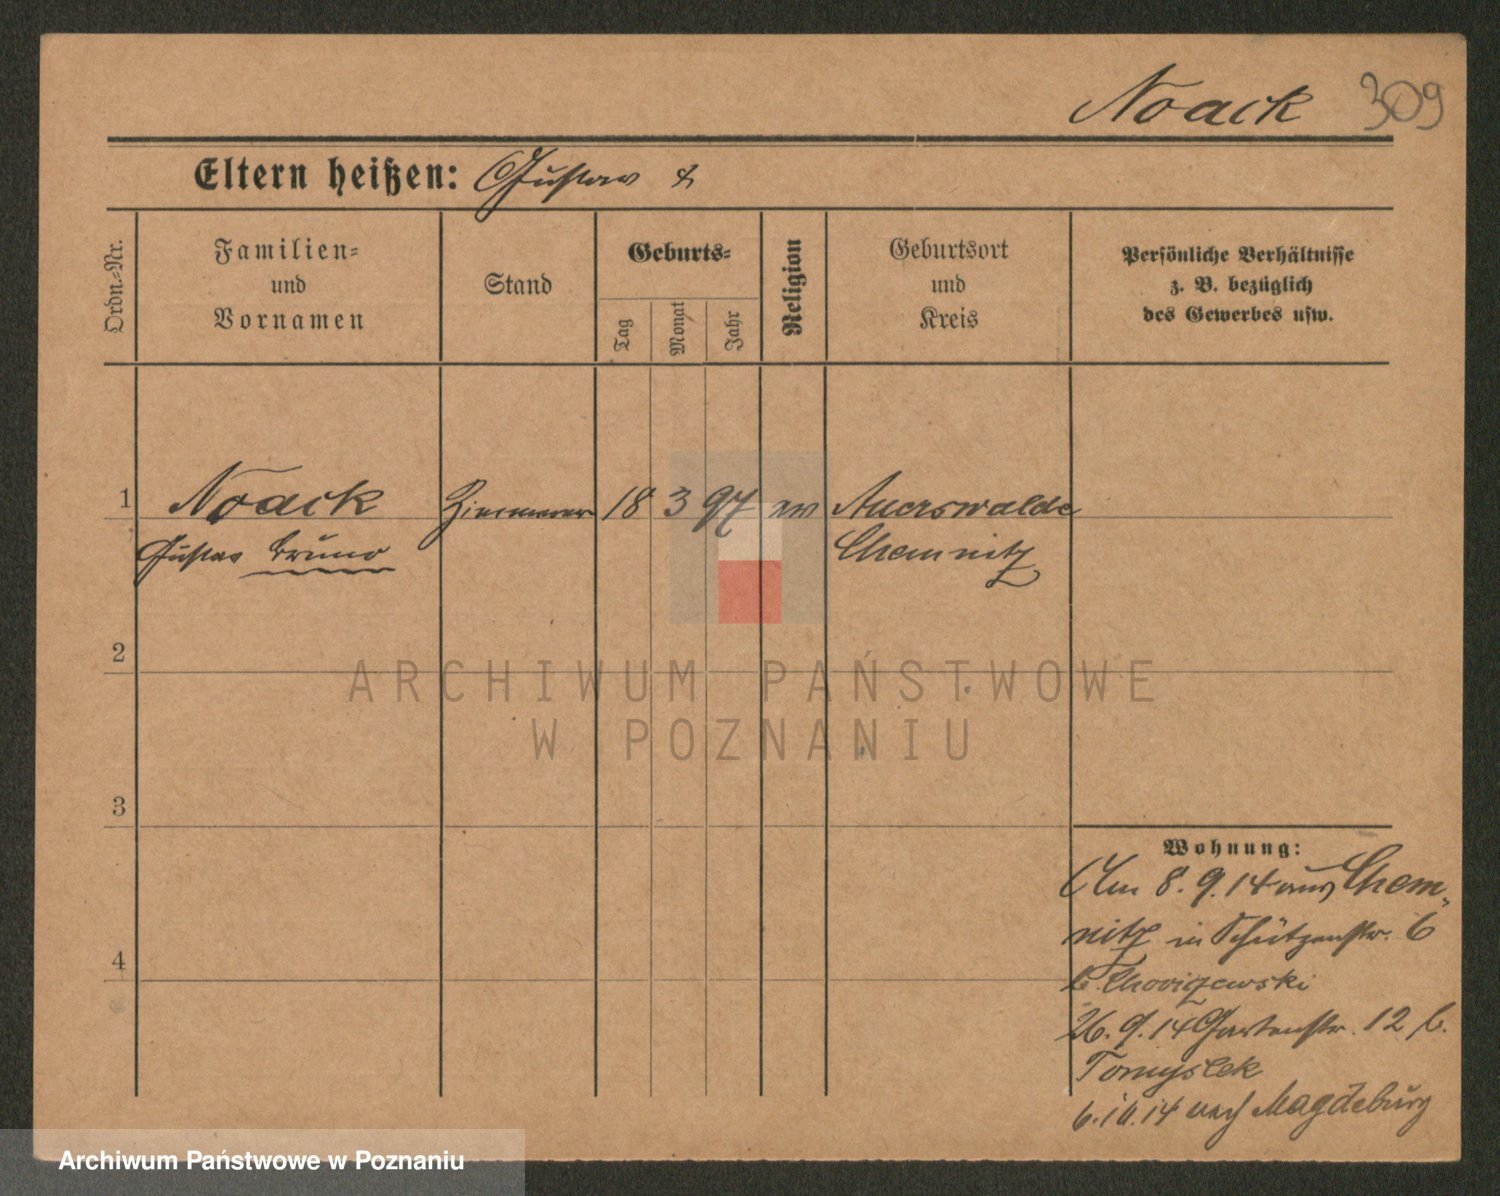 Noack 309
Eltern heißen: Gustav &
Ordn.=Nr.
Familien=
und
Vornamen
Stand
Geburts=
Tag
Monat
Jahr
Religion
Geburtsort
und
Kreis
Persönliche Verhältnisse
z. B. bezüglich
des Gewerbes usw.
1 Noack Zimmerer 18 3 97 ev Auerswalde
Gustav Bruno Chemnitz
2
3
4
Wohnung:
Am 8.9.14 aus Chem=
nitz in Schützenstr. 6
b.
26.9.14 Gartenstr. 12 b.
Tomyslek
6.10.14 nach Magdeburg
ARCHIWUM PAŃSTWOWE
W POZNANIU
Archiwum Państwowe w Poznaniu